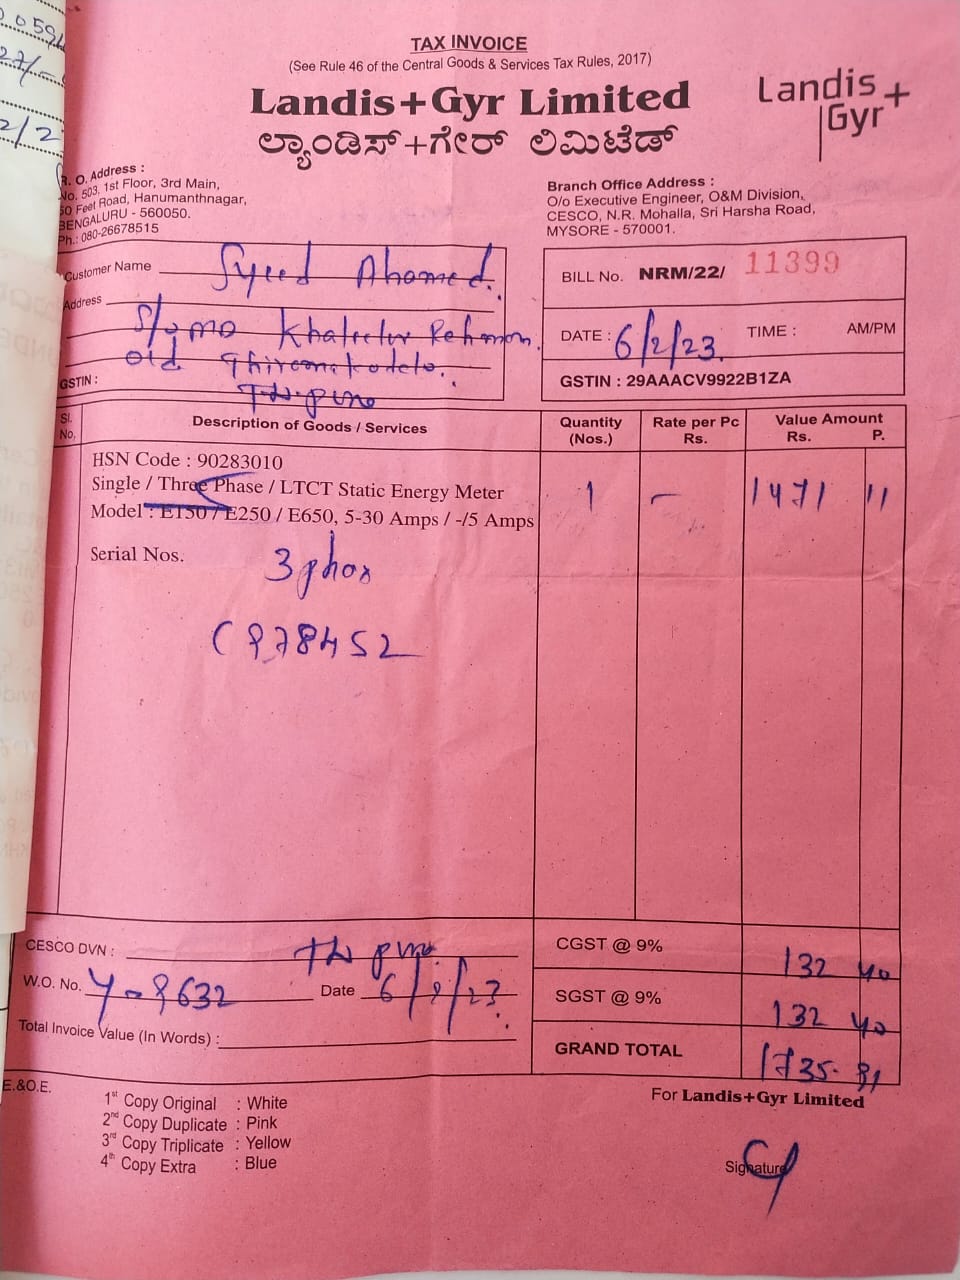 0594
27/-
2/2
TAX INVOICE
(See Rule 46 of the Central Goods & Services Tax Rules, 2017)
Landis+Gyr Limited
ಲ್ಯಾಂಡಿಸ್+ಗೇರ್ ಲಿಮಿಟೆಡ್
Landis+
Gyr
R. O. Address :
No. 503, 1st Floor, 3rd Main,
50 Feet Road, Hanumanthnagar,
BENGALURU - 560050.
Ph.: 080-26678515
Branch Office Address :
O/o Executive Engineer, O&M Division,
CESCO, N.R. Mohalla, Sri Harsha Road,
MYSORE - 570001.
Customer Name Syeed Ahamed.
Address S/o
old
GSTIN :
BILL No. NRM/22/ 11399
DATE : 6/2/23. TIME : AM/PM
GSTIN : 29AAACV9922B1ZA
Sl. No. Description of Goods / Services Quantity (Nos.) Rate per Pc Rs. Value Amount Rs. P.
HSN Code : 90283010
Single / Three Phase / LTCT Static Energy Meter 1 - 1471 11
Model : E150 / E250 / E650, 5-30 Amps / -/5 Amps
Serial Nos.
3
CESCO DVN :
W.O. No. Date
Total Invoice Value (In Words) :
CGST @ 9% 132 40
SGST @ 9% 132 40
GRAND TOTAL 1735.91
E.&O.E.
1st Copy Original : White
2nd Copy Duplicate : Pink
3rd Copy Triplicate : Yellow
4th Copy Extra : Blue
For Landis+Gyr Limited
Signature